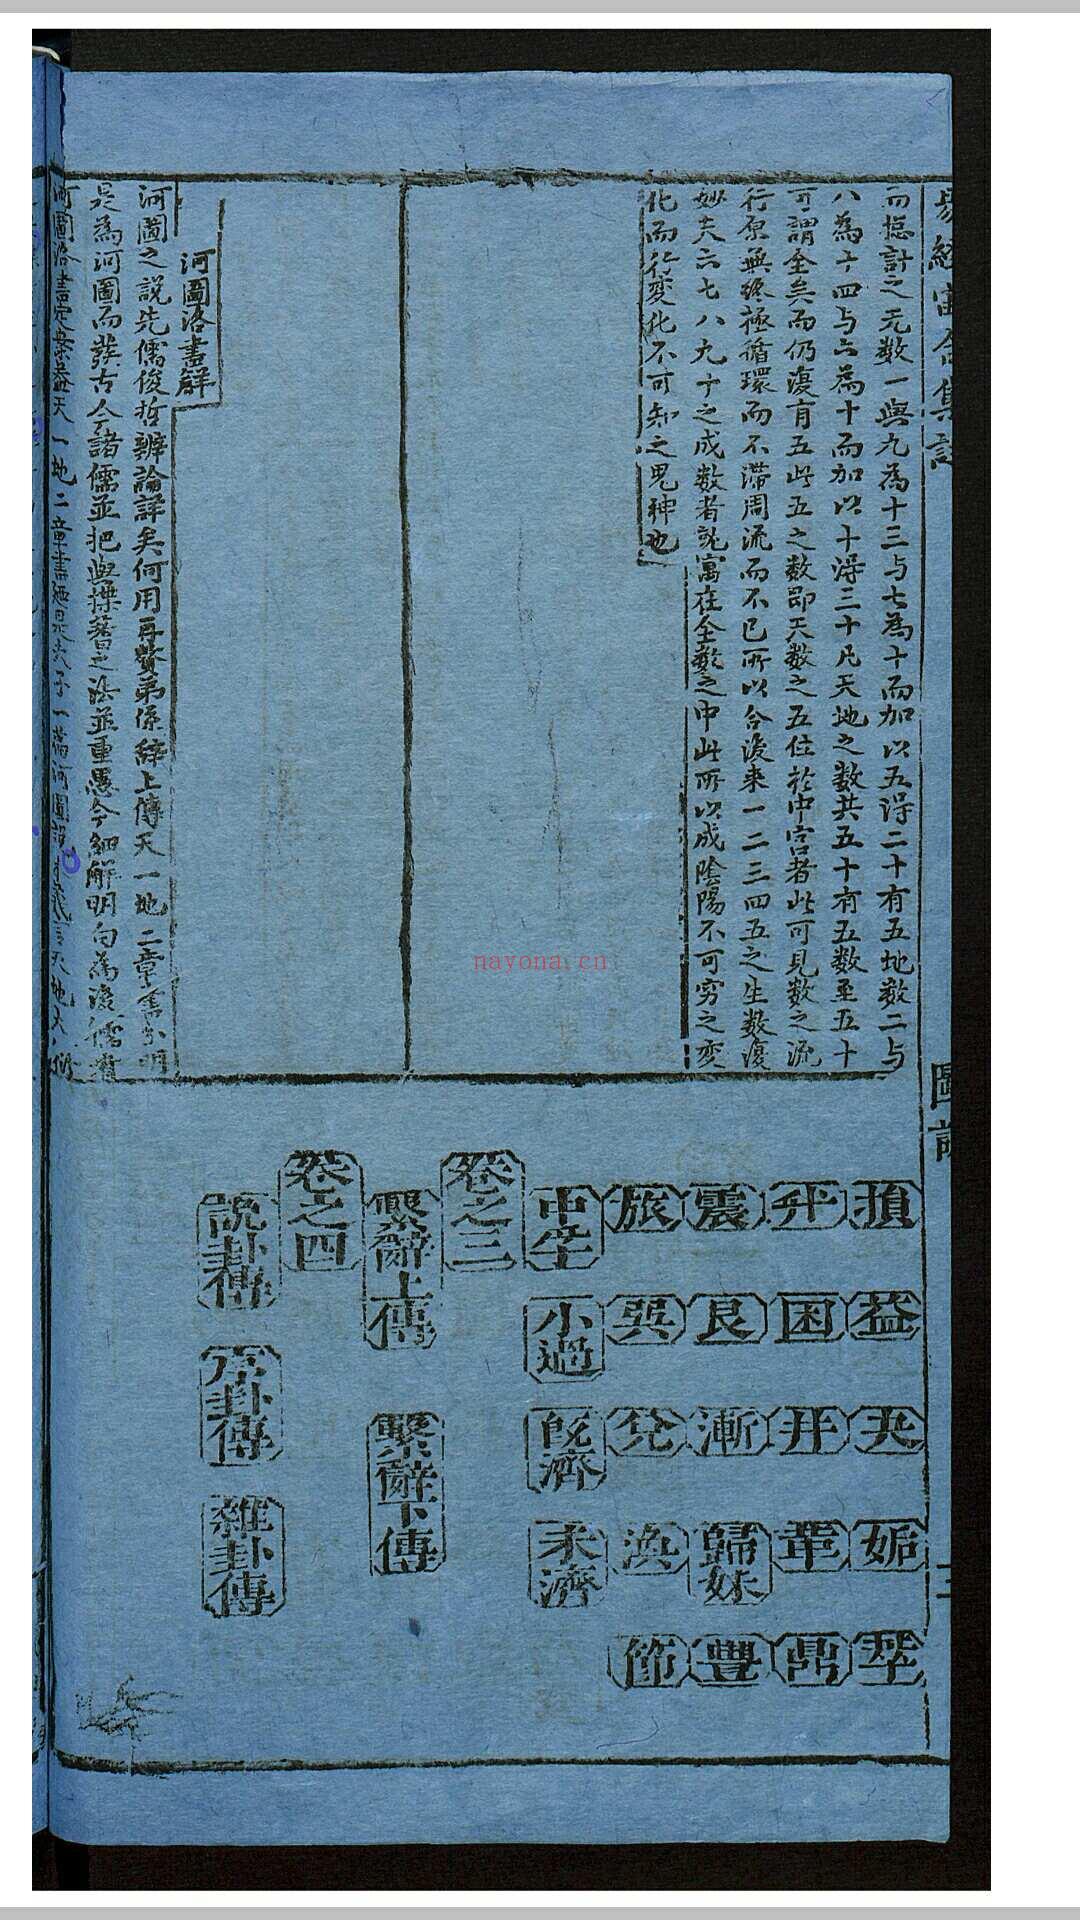 而揔計之天数一與九為十三与七為十而加以五淂二十有五地数二与
八為十四与六為十而加以十淂三十凡天地之数共五十有五数至五十
可謂全矣而仍復有五此五之数即天数之五位扵中宮者此可見数之流
行原無終極循環而不滞周流而不已所以合後来一二三四五之生数復
妙共六七八九十之成数者就寓在全数之中此所以成陰陽不可穷之变
化而行变化不可知之鬼神也
河圖洛書觧
河圖之說先儒俊哲辨論詳矣何用再贅弟係辝上傳天一地二章書不明
是為河圖而發古今諸儒並把與揲蓍之法並重愚今細解明白為後儒
河圖洛書定案盖天一地二章書
圖說
三
損 益 夬 姤 萃
升 困 井 革 鼎
震 艮 漸 歸妹 豐
旅 巽 兌 渙 節
中孚 小過 既濟 未濟
卷之三
繫辭上傳 繫辭下傳
卷之四
說卦傳 序卦傳 雜卦傳
nayona.cn